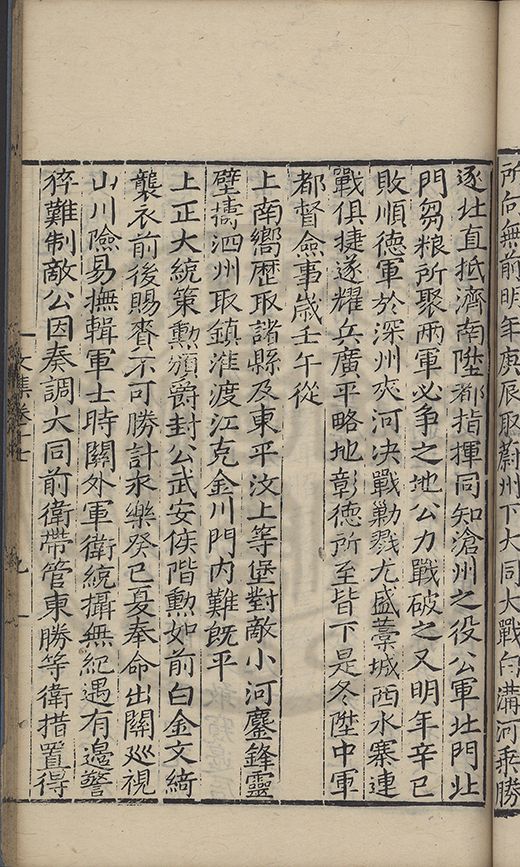 所向無前明年庚辰取蔚州下大同大戰白溝河乗勝
逐北直抵濟南陞都指揮同知滄州之役公軍北門北
門芻粮所聚两軍必爭之地公力戰破之又明年辛巳
敗順德軍於深州夾河决戰勦戮尤盛藁城西水寨連
戰俱捷遂耀兵廣平略地彰德所至皆下是冬陞中軍
都督僉事歲壬午從
上南嚮歴取諸縣及東平汶上等堡對敵小河鏖鋒靈
壁擣泗州取鎮淮渡江克金川門内難既平
上正大統策勲頒爵封公武安侯階勲如前白金文綺
襲衣前後賜賚不可勝計永樂癸巳夏奉命出關巡視
山川險易撫輯軍士時關外軍衛統攝無紀遇有邊警
猝難制敵公因奏調大同前衛帶管東勝等衛措置得
文集卷十七
九